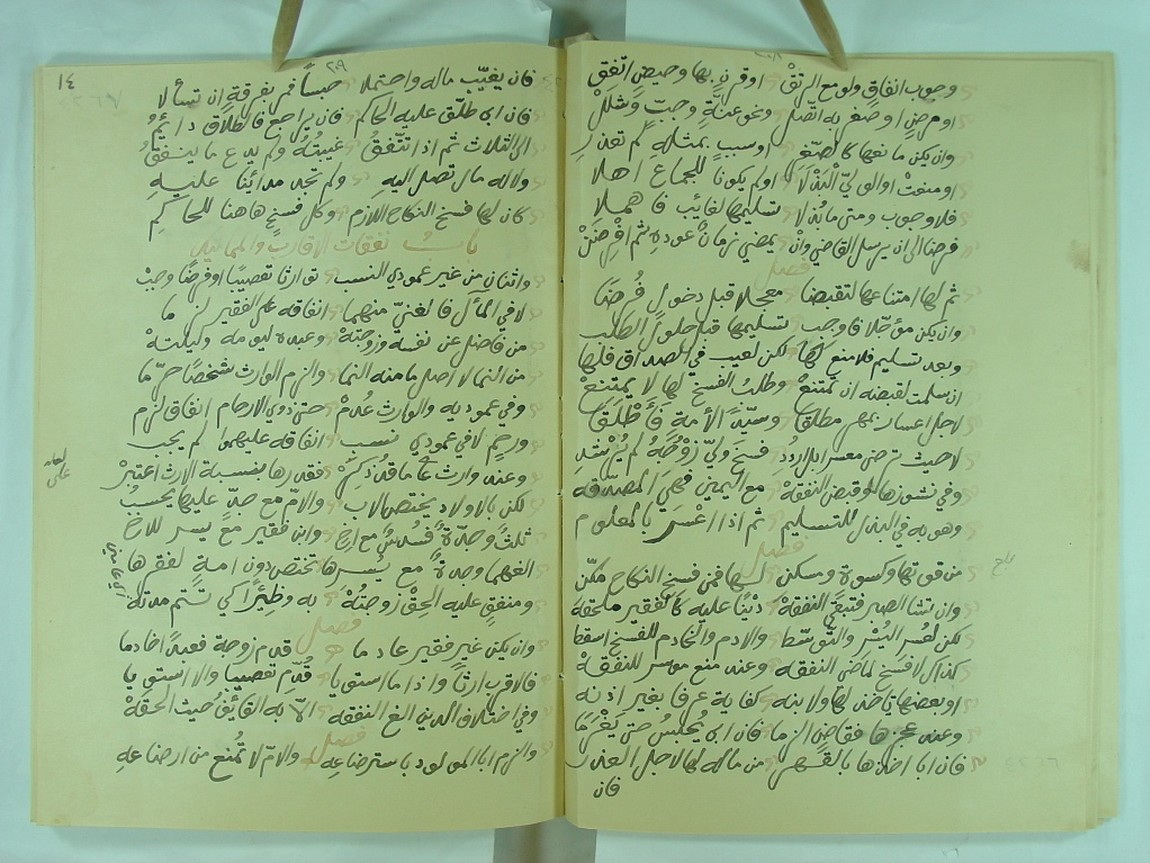 وجوب انفاق ولو مع الرتق او قرن بها وحيض اتفق
او مرض او صغر به اتصل ونحو عنة وجب وشلل
وان يكن مانعها كالصغر او سبب بمثله لم تعذر
او منعت او الولي البذلا او لم يكونا للجماع اهلا
فلا وجوب ومتى ما بذلا تسليمها لغائب فاهملا
فرضنا الى ان يرسل القاضي وان يمضي زمان عوده ثم افرضن
فصل
ثم لها امتناعها لتقبضا معجلا قبل دخول فرضا
وان يكن مؤجلا فاوجب تسليمها قبل حلول الطلب
وبعد تسليم فلا منع لها لكن لعيب في الصداق فلها
ان سلمت لقبضه ان تمتنع وطلب الفسخ لها لا يمتنع
لاجل اعسار بمهر مطلقا وسيد الأمة فأطلقا
لا حيث ترضى معسرا بل اردد فسخ ولي زوجة لم ترشد
وفي نشوزها لو قبض النفقة مع اليمين فهي المصدقه
وهو به في البذل للتسليم ثم اذا اعسر بالمعلوم
فصل
من قوتها وكسوة ومسكن لها فمن فسخ النكاح مكن
وان تشا الصبر فتبقى النفقة دينا عليه كالفقير ملحقة
لكن لعسر اليسر والتوسط والادم والخادم للفسخ اسقط
كذاك لا فسخ لماضي النفقه وعند منع موسر للنفقة
او بعضها تاخذ لها ولابنه كفاية عرفا بغير اذنه
وعند عجزها فقاض الزما فان ابى يحبس حتى يغرما
فان ابا اخذها بالقهر من ماله لها لاجل العذر
فان
١٤
٢٩
فان يغيب ماله واحتملا حبسا فمر بفرقة ان تسألا
فان ابى طلق عليه الحاكم فان يراجع فالطلاق دائم
الى الثلاث ثم اذا تتفق غيبته ولم يدع ما ينفق
ولا له مال تصل اليه ولم تجد مدائنا عليه
كان لها فسخ النكاح اللازم وكل فسخ هاهنا للحاكم
باب نفقات الاقارب والمماليك
واثنان من غير عمودي النسب توارثا تعصيبا او فرضا وجب
لا في المآل فالغني منهما انفاقه على الفقير لزما
من فاضل عن نفسه وزوجته وعبده ليومه وليلته
من النما لا اصل ما منه النما والزم الوارث شخصا حرما
وفي عموديه والوارث عدم حتى ذوي الارحام انفاق لزم
ورحم لا في عمودي نسب انفاقه عليهموا لم يجب
وعند وارث على ما قد ذكر فقدرها بنسبة الارث اعتبر
لكن بالاولاد يختص الاب والام مع جد عليها يحسب
ثلث وجدة فسدس مع اخ وابن فقير مع يسر للاخ
الغهما وجدة مع يسرها تختص دون امه لفقرها
ومنفق عليه الحق زوجته به وظئرا كي تستتم مدته
فصل
وان يكن غير فقير عادما قدم زوجة فعبدا خادما
فالاقرب ارثا واذا ما استويا قدم تعصيبا والا استويا
وفي اختلاف الدين الغ النفقه الا به القائف حيث الحقه
فصل
والزم ابا المولود باسترضاعه والام لا تمنع من ارضاعه